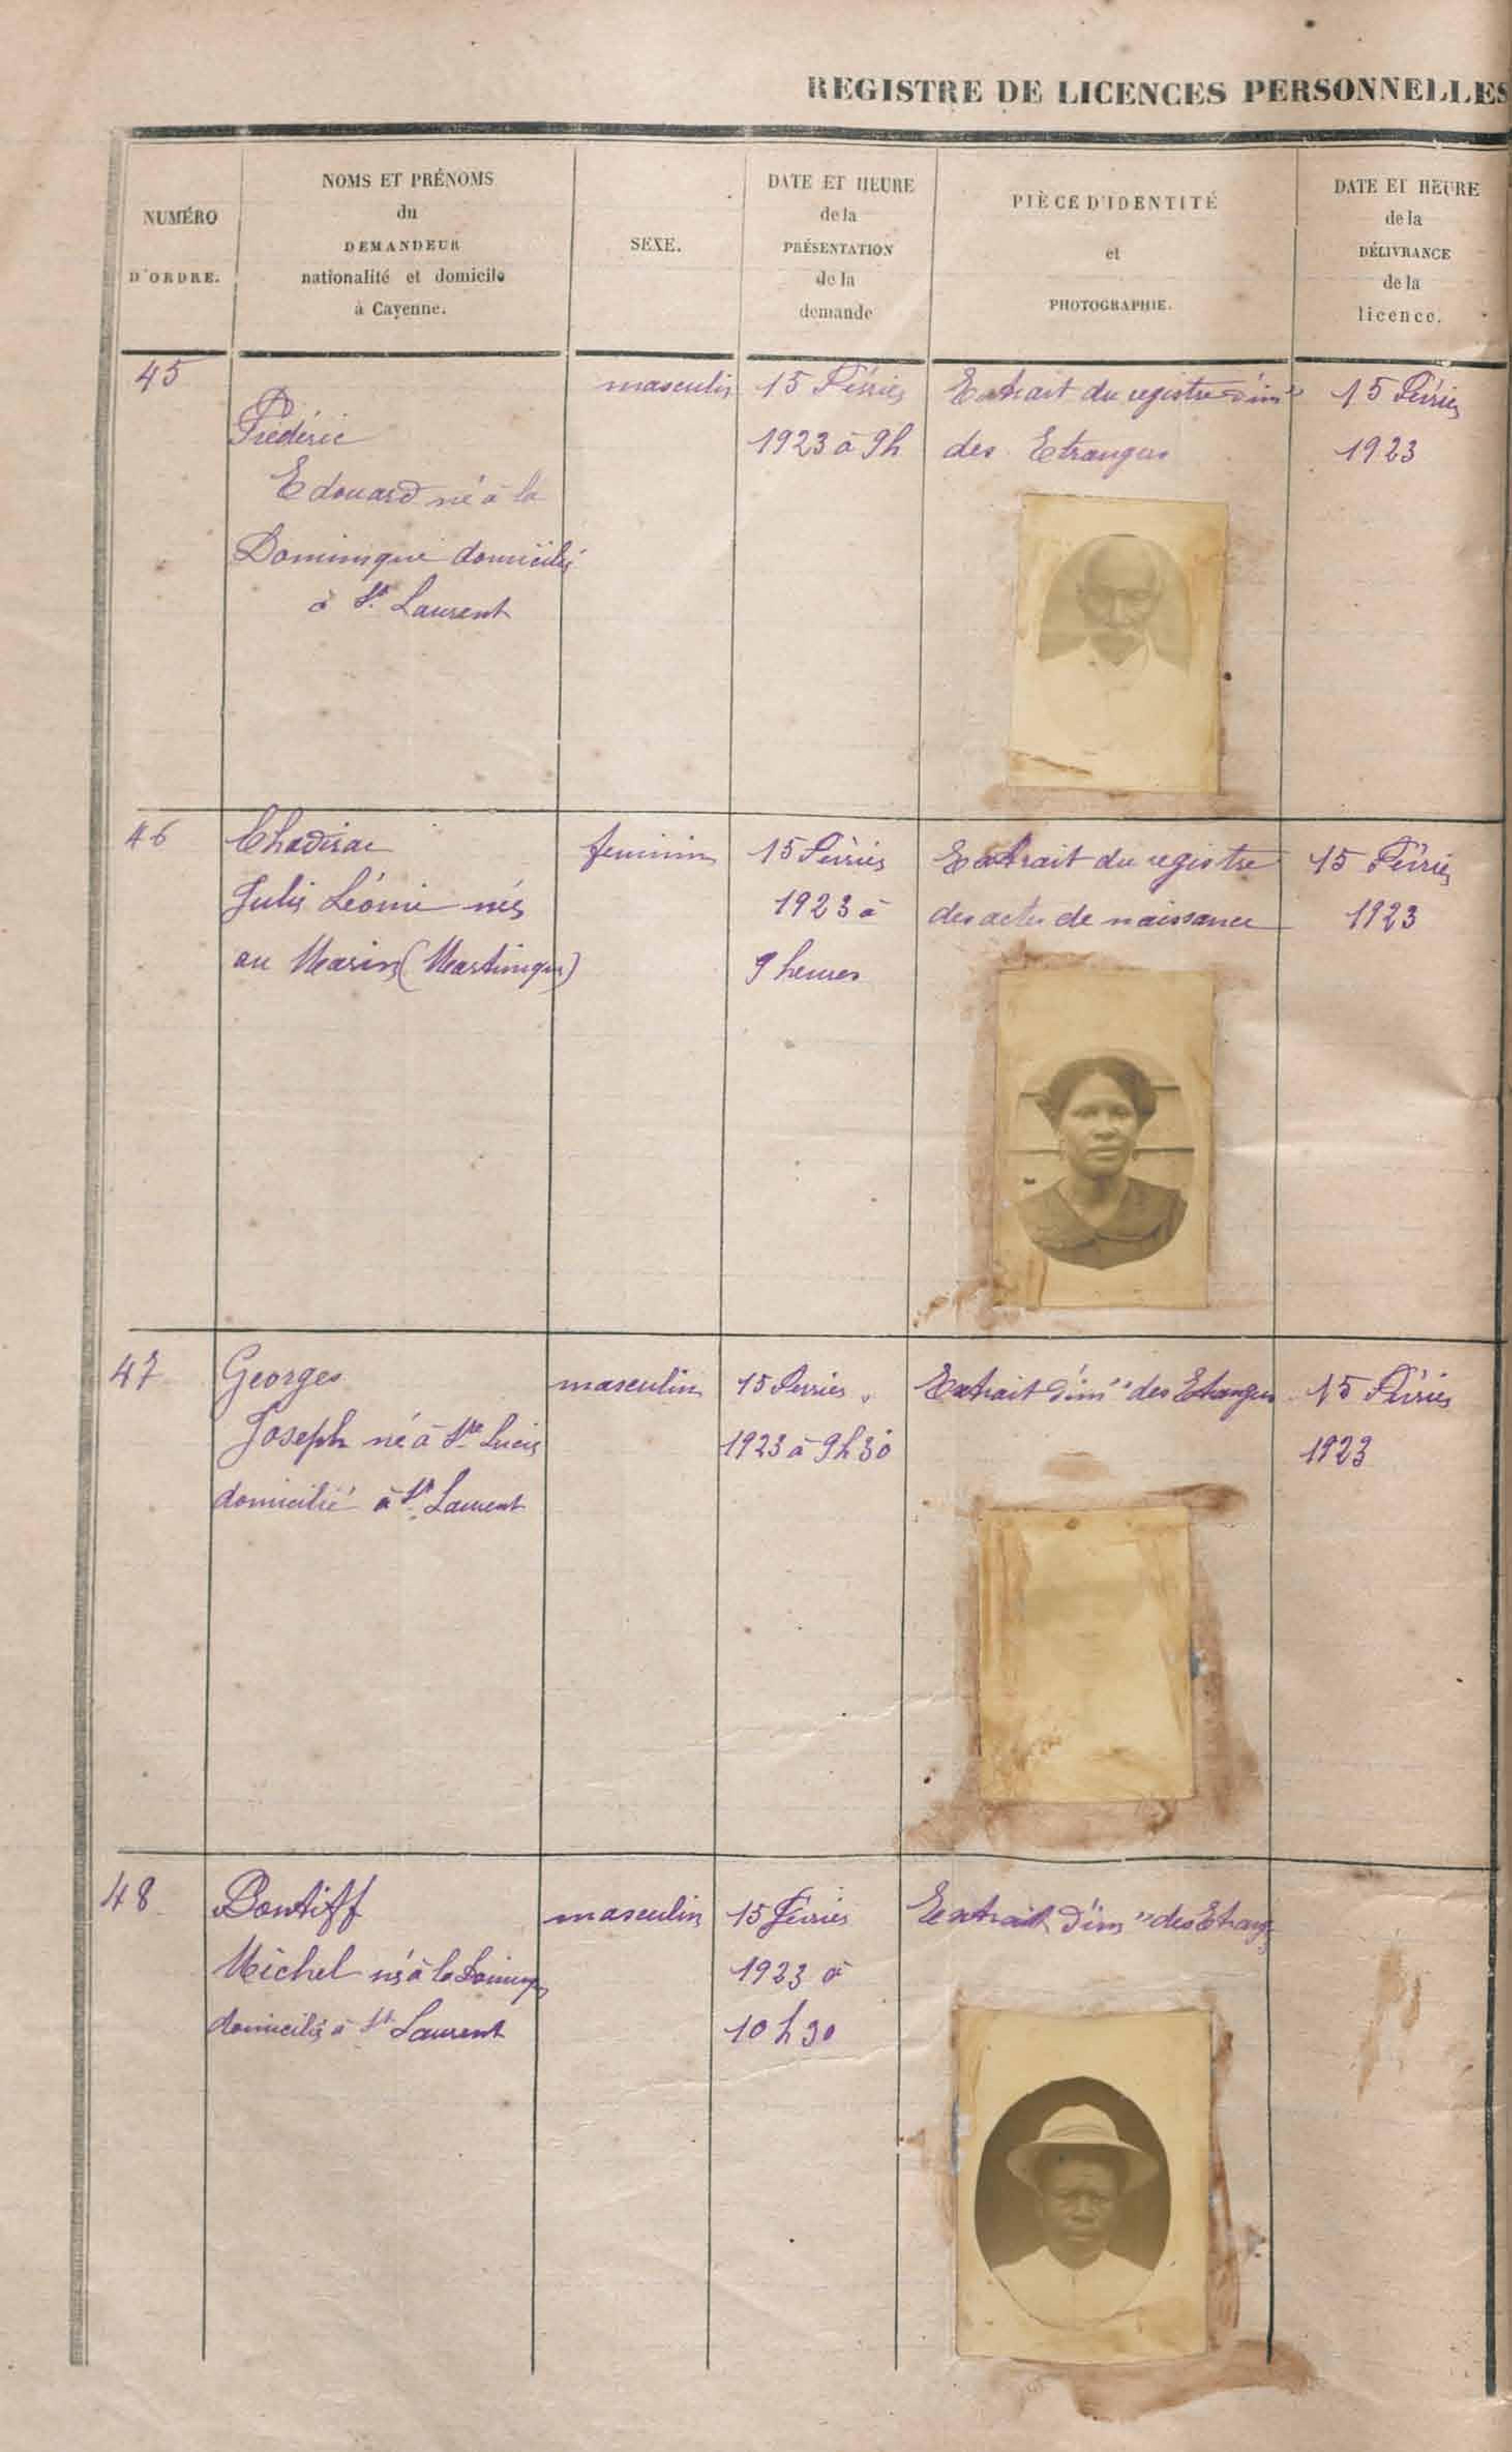 REGISTRE DE LICENCES PERSONNELLES
NUMÉRO
D'ORDRE.
NOMS ET PRÉNOMS
du
DEMANDEUR
nationalité et domicile
à Cayenne.
SEXE.
DATE ET HEURE
de la
PRÉSENTATION
de la
demande
PIÈCE D'IDENTITÉ
et
PHOTOGRAPHIE.
DATE ET HEURE
de la
DÉLIVRANCE
de la
licence.
45
Frédéric
Edouard né à la
Dominique domicilié
à St. Laurent
masculin
15 Février
1923 à 9h
Extrait du registre d'imon
des Etrangers
15 Février
1923
46
Chadirac
Julie Léonie née
au Marin (Martinique)
feminin
15 Février
1923 à
9 heures
Extrait du registre
des actes de naissance
15 Février
1923
47
Georges
Joseph né à Ste Lucie
domicilié à St. Laurent
masculin
15 Février
1923 à 9h30
Extrait d'imon des Etrangers
15 Février
1923
48
Pontiff
Michel né à la
domicilié à St Laurent
masculin
15 Février
1923 à
10 h 30
Extrait d'imon des Etrang